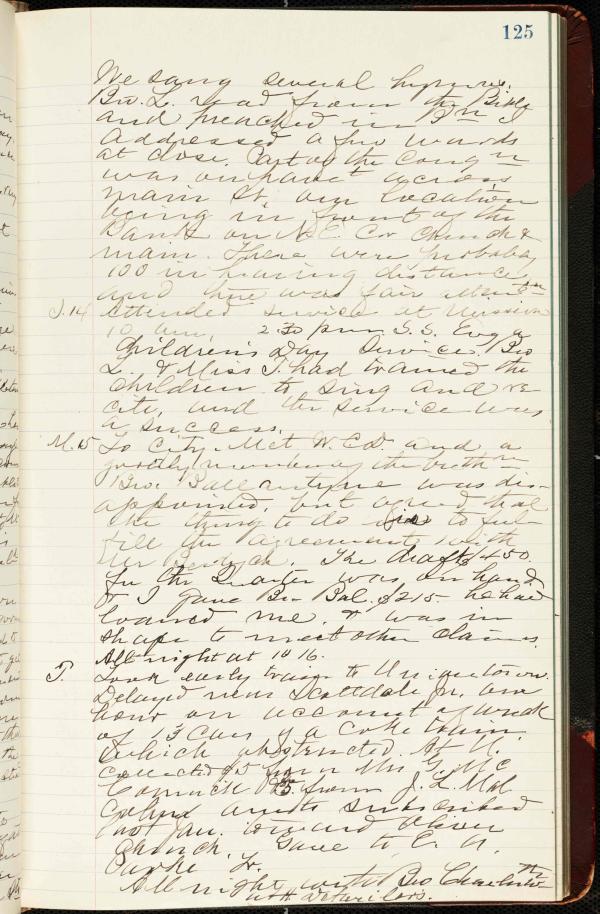 125
We sang several hymns.
Bro. L. read from the Bible
and preached in Bn I
addressed a few words
at close. Part of the congn
was on pavet across
main St, our location
being in front of the
Bank on N.E. Cor Church &
main. There were probably
100 in hearing distance,
and there was fair attentn
S. 14 Attended service at Mission
10 am, 2.30 pm S.S. Evg a
Children's Day Service. Bro
L. & Miss T. had trained the
children to sing and re-
cite, and the service was
a success.
M. 15 To City. Met W.C.D and a
goodly number of the brethn
Bro. Ballantyne was dis-
appointed, but agreed that
the thing to do was to ful-
fill the agreement with
The draft $450
for the Quarter was on hand
& I gave Bro Bal. $215 he had
loaned me, & was in
shape to meet other claims.
All night at 1016.
T. Took early train to Uniontown.
Delayed near Scottdale Jn. one
hour on account of wreck
of 13 cars of a coke train,
which obstructed. At U.
collected $5 from Mrs G. Mc
Cormick $5 from J. L. Mal
and subscribed
toward
Church. Gave to E. N.
All night with Bro Charles